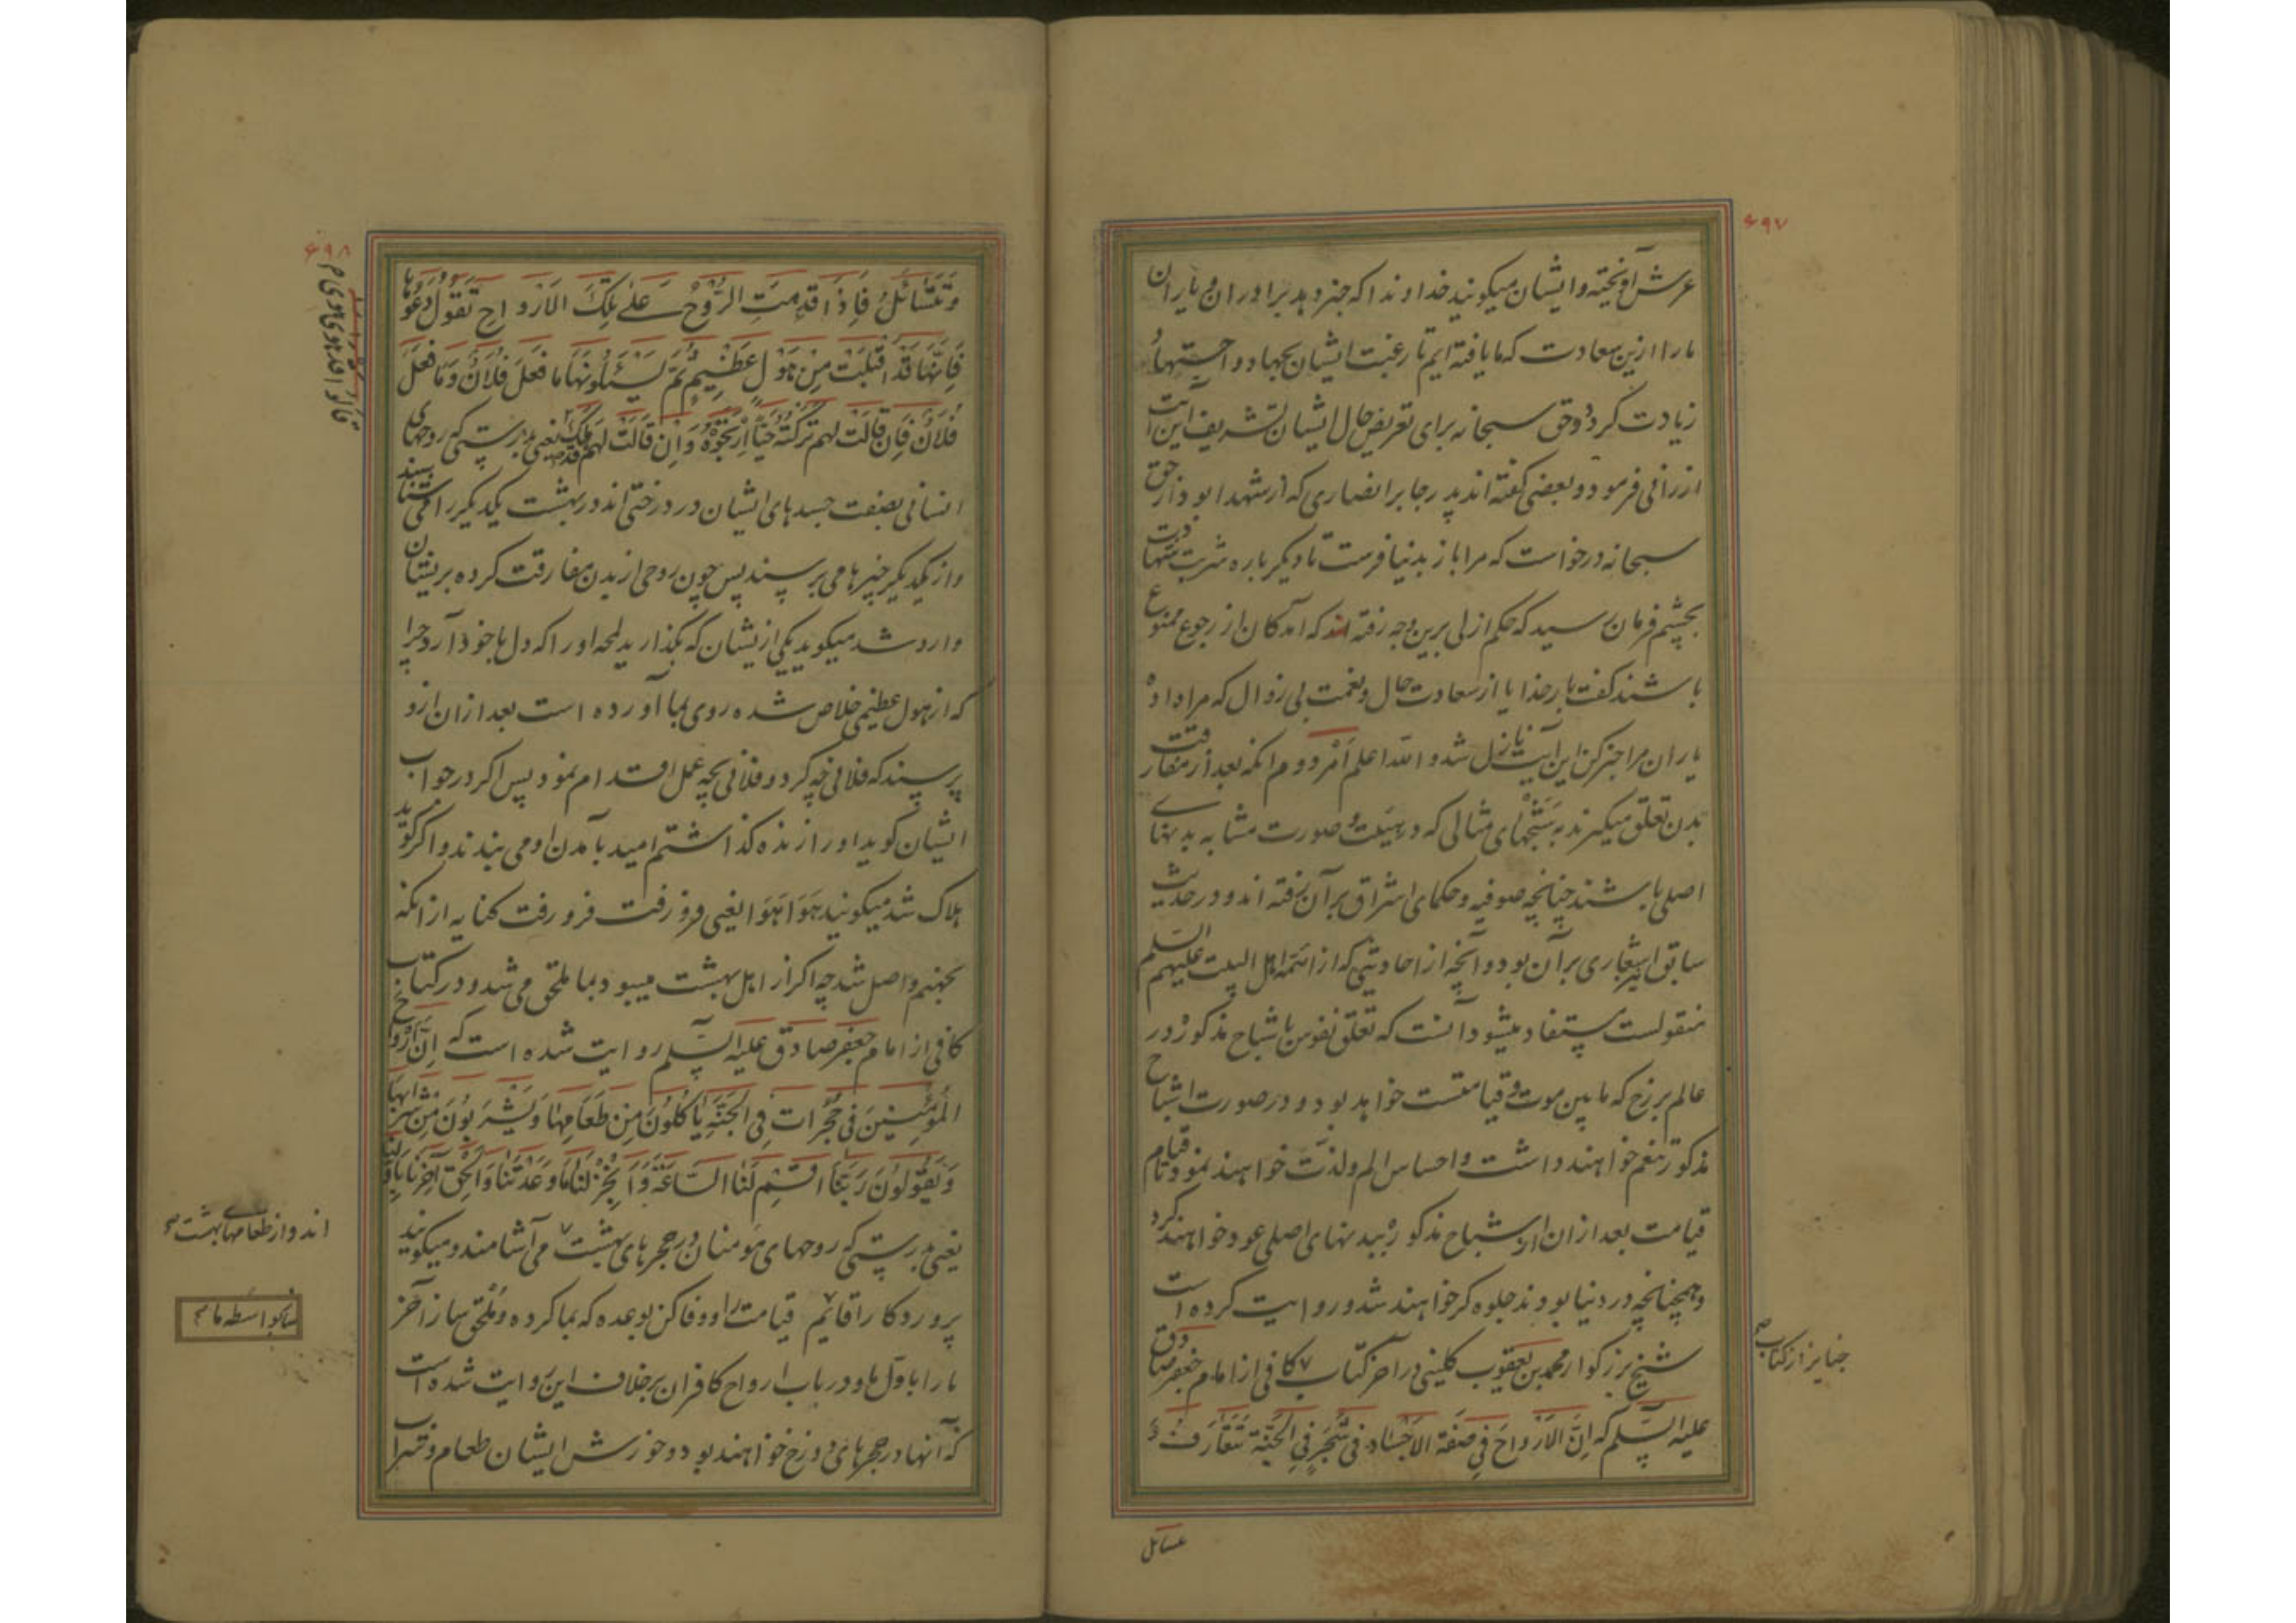 ۶۹۷
عرش آویخته و ایشان میکویند خداوندا که خبر دهد برادران و یاران
ما را ازین سعادت که ما یافته ایم تا رغبت ایشان بجهاد و اجتهاد
زیادت کردد و حق سبحانه برای تعریض حال ایشان تشریف این آیت
ارزانی فرمود و بعضی کفته اند پدر جابر انصاری که از شهدا بود از حق
سبحانه درخواست که مرا باز بدنیا فرست تا دیکر باره شربت شهادت
بچشم فرمان رسید که حکم ازلی برین وجه رفته که آمدکان از رجوع ممنوع
باشند کفت بار خدایا از سعادت حال و نعمت بی زوال که مرا داده
یاران مرا خبر کن این آیت نازل شد و الله اعلم امر دوم انکه بعد از مفارقت
بدن تعلق میکیرند به شبحهای مثالی که در هیئت و صورت مشابه بدنهای
اصلی باشند چنانچه صوفیه و حکمای اشراق برآن رفته اند و در حدیث
سابق نیز اشعاری برآن بود و آنچه از احادیثی که از ائمه اهل البیت علیهم السلم
منقولست مستفاد میشود آنست که تعلق نفوس باشباح مذکوره در
عالم برزخ که ما بین موت و قیامتست خواهد بود و در صورت اشباح
مذکور تنعم خواهند داشت و احساس الم و لذت خواهند نمود تا قیام
قیامت بعد ازان از اشباح مذکوره ببدنهای اصلی عود خواهند کرد
و همچنانچه در دنیا بودند جلوه کر خواهند شد و روایت کرده است
شیخ بزرکوار محمد بن یعقوب کلینی در آخر کتاب ۷ کافی از امام جعفر صادق
جنایز از کتاب
علیه السلم که اِنَّ الاَرْواحَ فِی صِفَة الاَجْسَادِ فی شَجَرٍ فِی الجَنَّة تَتَعَارَفُ وَ
تسائل
۶۹۸
وَتَتَسَائَلُ فَاِذَا قَدِمَتِ الرُّوحُ عَلی تِلْکَ الاَرْواحِ تَقُولُ دَعُوهَا
فَاِنَّهَا قَدْ اَقْبَلَتْ مِنْ هَوْلٍ عَظِیمٍ ثُمَّ یَسْئَلُونَهَا مَا فَعَلَ فُلَانٌ وَمَا فَعَلَ
فُلَانٌ فَاِن قَالَتْ لهم تَرَکْتُهُ حَیّاً اِرْتَجَوْهُ وَاِن قَالَتْ لهم قد هلک یعنی بدرستی که روحهای
قالوا قد هوی هوی
انسانی بصفت جسدهای ایشان در درختی اند در بهشت یکدیکر را می شناسند
و از یکدیکر خبرها می پرسند پس چون روحی از بدن مفارقت کرده بریشان
وارد شد میکوید یکی ازیشان که بکذارید لمحه اورا که دل با خود آرد چرا
که از هول عظیمی خلاص شده روی بما آورده است بعد ازان ازو
پرسند که فلانی چه کرد و فلانی بچه عمل اقدام نمود پس اکر در جواب
ایشان کوید اورا زنده کذاشتم امید بآمدن او می بندند و اکر کوید
هلاک شد میکویند هَوَا هَوَا یعنی فرو رفت فرو رفت کنایه از انکه
بجهنم واصل شد چه اکر از اهل بهشت میبود بما ملحق می شد و در کتاب
کافی از امام جعفر صادق علیه السلم روایت شده است که اِنَّ اَرْوَاحَ
المُؤْمِنِینَ فی حُجُرَاتٍ فِی الجَنَّةِ یَاکُلُونَ مِنْ طَعَامِهَا وَیَشْرَبُونَ مِنْ شَرَابِهَا
وَیَقُولُونَ رَبَّنَا اَقِمْ لَنَا السَّاعَةَ وَاَنْجِزْ لَنَا مَا وَعَدْتَنَا وَاَلْحِقْ آخِرَنَا بِاَوَّلِنَا
یعنی بدرستی که روحهای مؤمنان در حجرهای بهشت ۷ می آشامند و میکویند
اند و از طعامهای بهشت
پروردکارا قایم قیامت را و وفا کن بوعده که بما کرده و ملحق ساز آخر
ما را باول ما و در باب ارواح کافران برخلاف این روایت شده است
که آنها در حجرهای دوزخ خواهند بود و خورش ایشان طعام و شراب